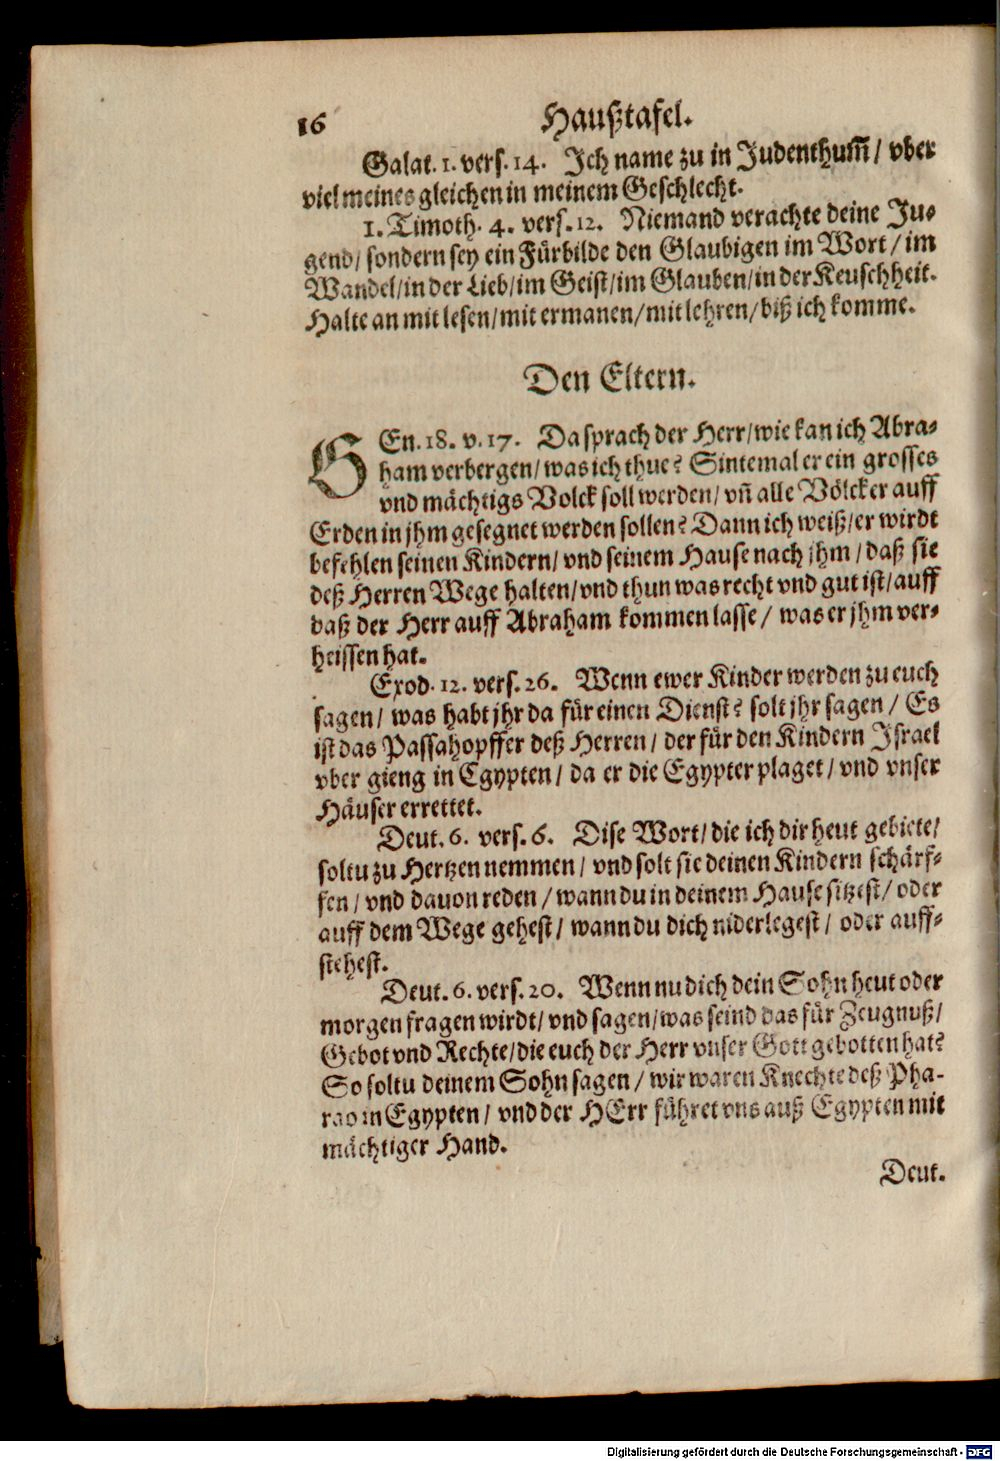 16 Haußtafel.
Galat. 1. vers. 14. Ich name zu in Judenthum̃ / vber
viel meines gleichen in meinem Geschlecht.
1. Timoth. 4. vers. 12. Niemand verachte deine Ju⸗
gend / sondern sey ein Fürbilde den Glaubigen im Wort / im
Wandel / in der Lieb / im Geist / im Glauben / in der Keuschheit.
Halte an mit lesen / mit ermanen / mit lehren / biß ich komme.
Den Eltern.
GEn. 18. v. 17. Da sprach der Herr / wie kan ich Abra⸗
ham verbergen / was ich thue? Sintemal er ein grosses
vnd mächtigs Volck soll werden / vñ alle Völcker auff
Erden in jhm gesegnet werden sollen? Dann ich weiß / er wirdt
befehlen seinen Kindern / vnd seinem Hause nach jhm / daß sie
deß Herren Wege halten / vnd thun was recht vnd gut ist / auff
daß der Herr auff Abraham kommen lasse / was er jhm ver⸗
heissen hat.
Exod. 12. vers. 26. Wenn ewer Kinder werden zu euch
sagen / was habt jhr da für einen Dienst? solt jhr sagen / Es
ist das Passahopffer deß Herren / der für den Kindern Israel
vber gieng in Egypten / da er die Egypter plaget / vnd vnser
Häuser errettet.
Deut. 6. vers. 6. Dise Wort / die ich dir heut gebiete /
soltu zu Hertzen nemmen / vnd solt sie deinen Kindern schärf⸗
fen / vnd dauon reden / wann du in deinem Hause sitzest / oder
auff dem Wege gehest / wann du dich niderlegest / oder auff⸗
stehest.
Deut. 6. vers. 20. Wenn nu dich dein Sohn heut oder
morgen fragen wirdt / vnd sagen / was seind das für Zeugnuß /
Gebot vnd Rechte / die euch der Herr vnser Gott gebotten hat?
So soltu deinem Sohn sagen / wir waren Knechte deß Pha-
rao in Egypten / vnd der HErr führet vns auß Egypten mit
mächtiger Hand.
Deut.
Digitalisierung gefördert durch die Deutsche Forschungsgemeinschaft - DFG